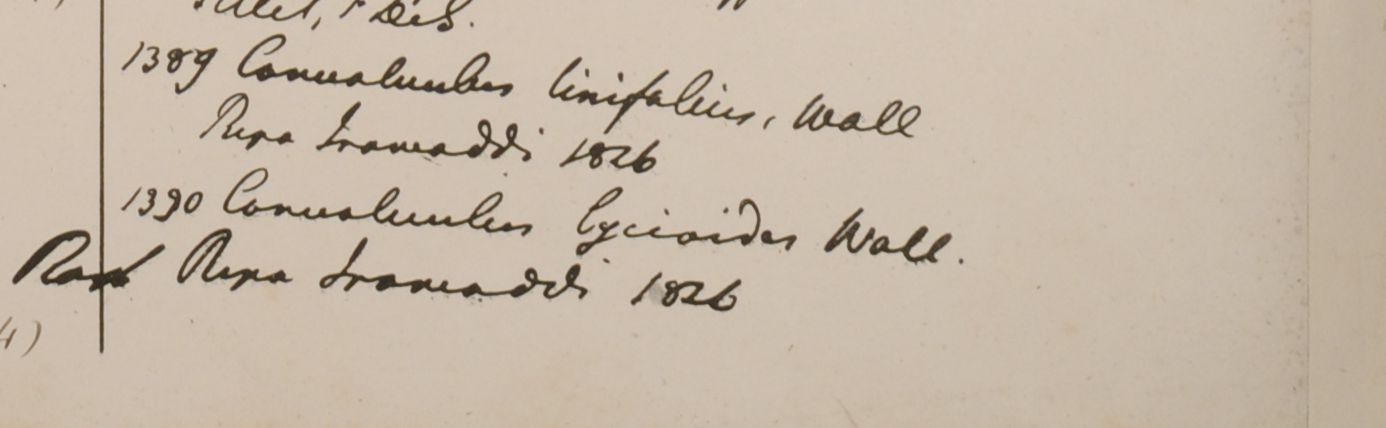 1389 Convolvulus linifolius, Wall
Ripa Irawaddi 1826
1390 Convolvulus lycioides Wall.
Ripa Irawaddi 1826
4)